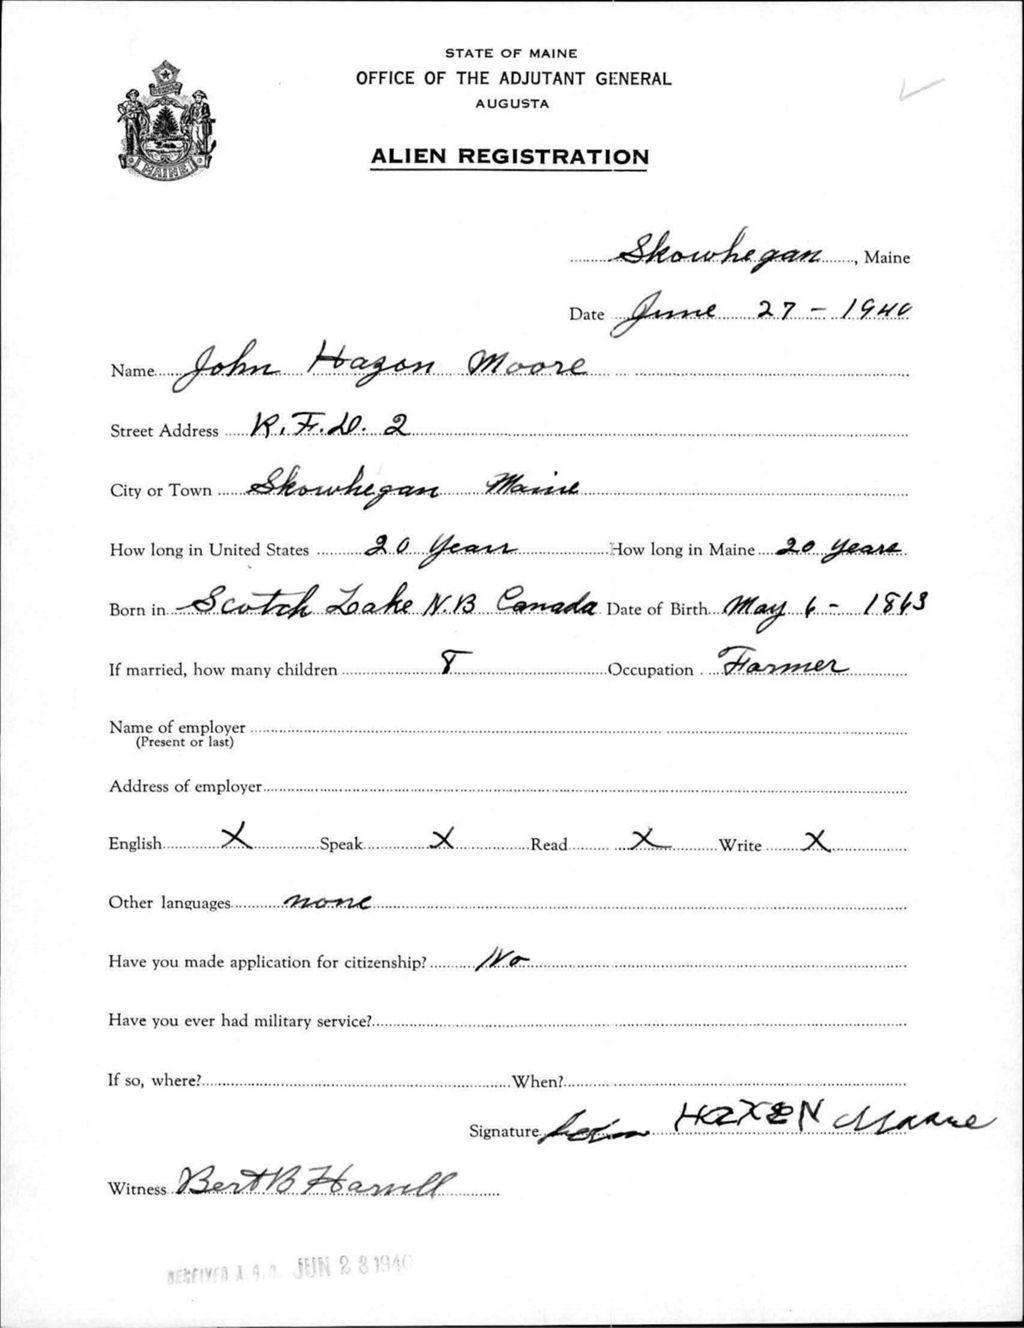 STATE OF MAINE
OFFICE OF THE ADJUTANT GENERAL
AUGUSTA
ALIEN REGISTRATION
MAINE
Skowhegan, Maine
Date June 27 - 1940
Name John Hazon Moore
Street Address R.F.D. 2
City or Town Skowhegan Maine
How long in United States 20 Years How long in Maine 20 years
Born in Scotch Lake N.B. Canada Date of Birth May 6 - 1863
If married, how many children 8 Occupation Farmer
Name of employer
(Present or last)
Address of employer
English X Speak X Read X Write X
Other languages none
Have you made application for citizenship? No
Have you ever had military service?
If so, where? When?
Signature John HaZeN Moore
Witness Bert B
RECEIVED A. G. O. JUN 28 1940